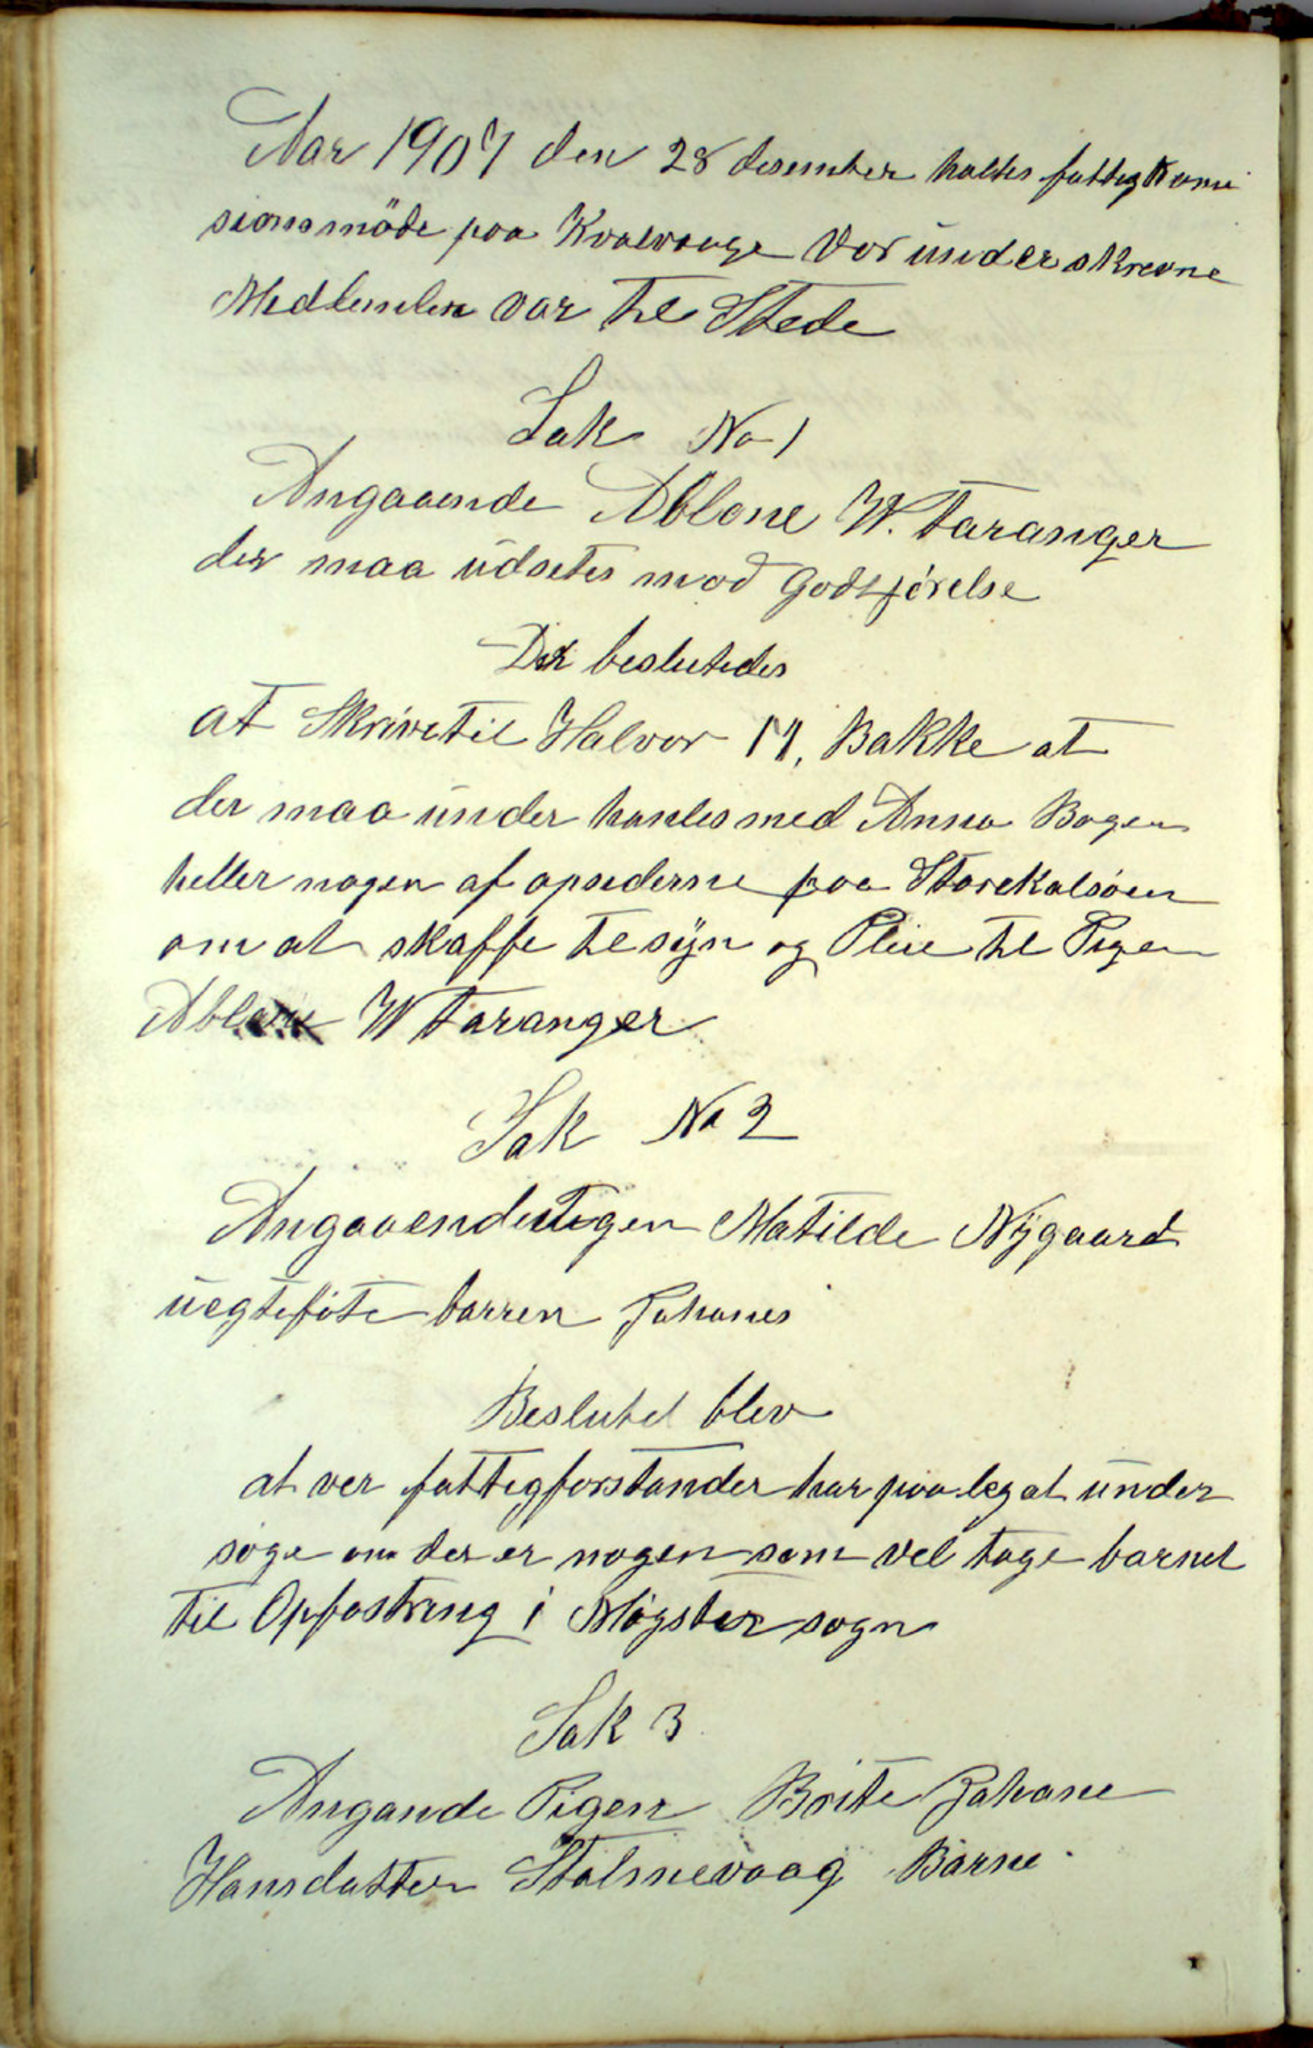 Aar 1907 den 28 desember holtes fattigkomi
sionsmöde paa Kvalvaage Vor underskrevne
Medlemler var til Stede
Sak No 1
Angaaende Ablone W. Taranger
der maa udsetes mod Godtjörelse
Der beslutedes
at Skrive til Halvor M. Bakke at
der maa under hanles med Anna Bogen
heller nogen af opsederne paa Storekalsöen
om at skaffe telsyn og Pleie til Pigen
Ablone W Taranger
Sak No 2
Angaaende Pigen Matilde Nygaard
uegteföte barren Johanes
Beslutet blev
at ver fattigforstander har paaleg at under
söge om der er nogen som vel tage barnet
til Opfostring i Møgster sogn
Sak 3
Angande Pigen Brite Johane
Hansdatter Stolmevaag Barne